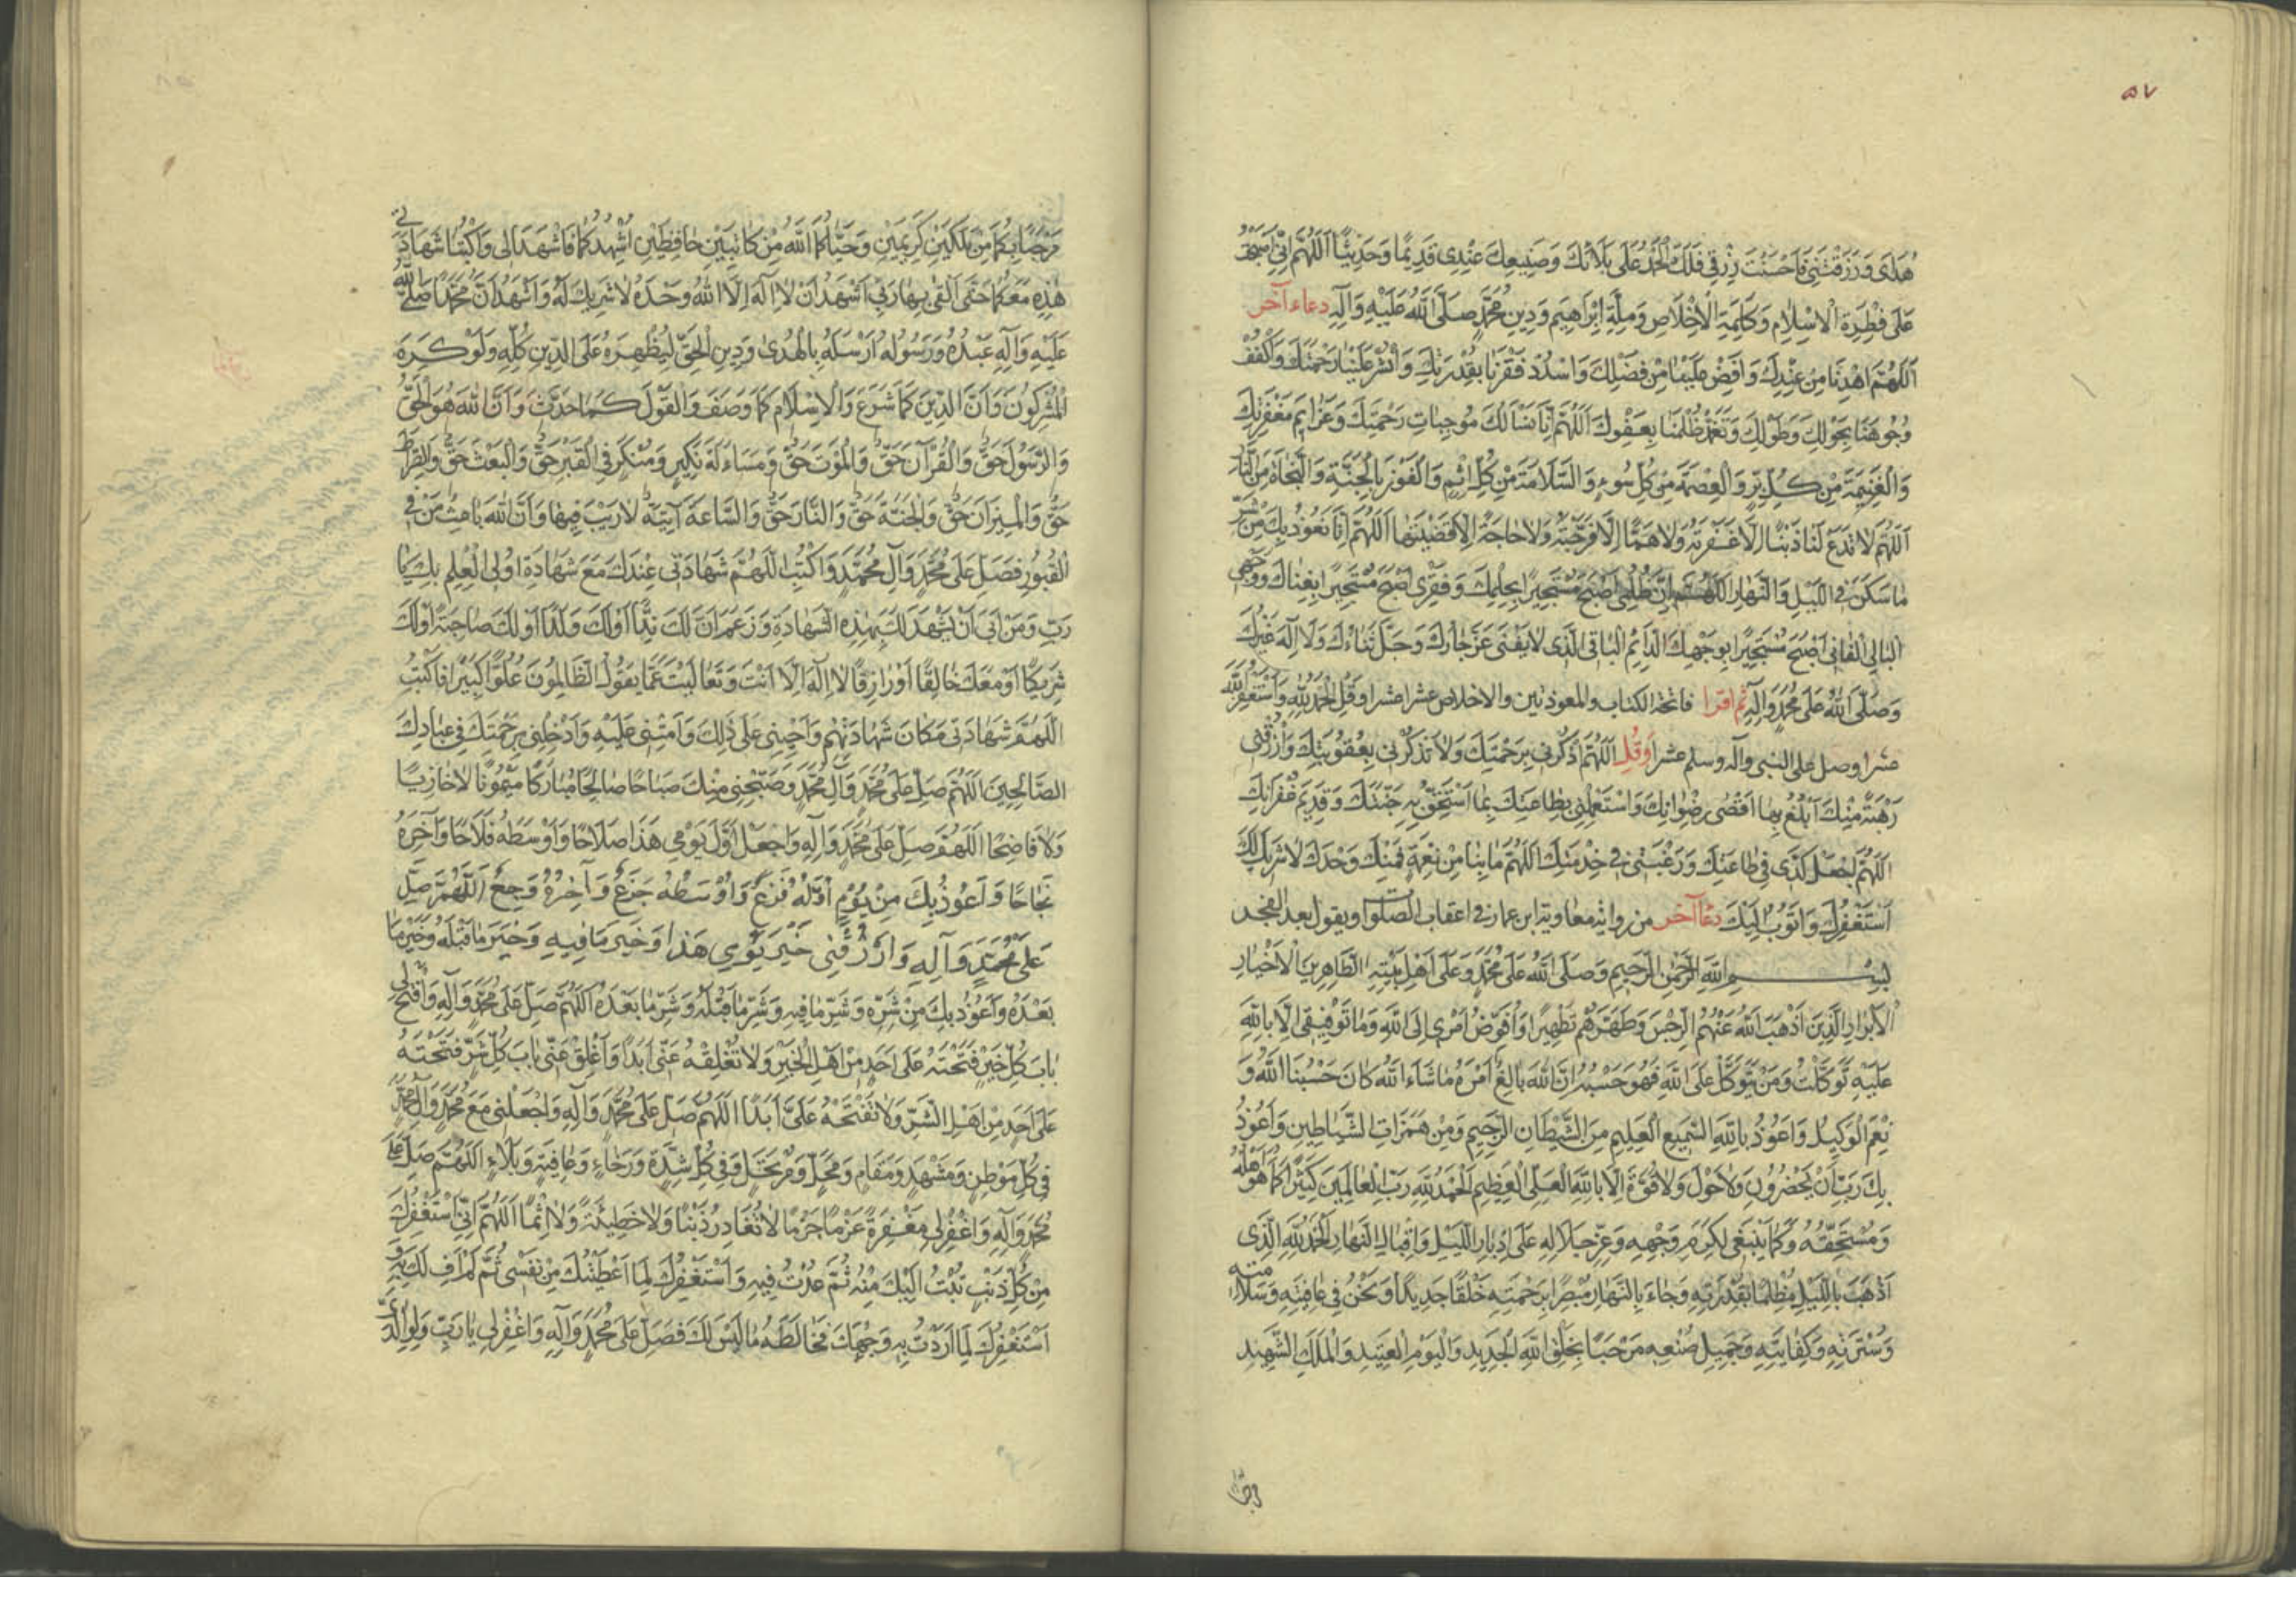 ٥٧
هُدَايَ وَرَزَقْتَنِي فَاَحْسَنْتَ رِزْقِي فَلَكَ الْحَمْدُ عَلَى بَلَائِكَ وَصَنِيعِكَ عِنْدِي قَدِيمًا وَحَدِيثًا اَللّٰهُمَّ اِنِّي اَصْبَحْتُ
عَلَى فِطْرَةِ الْاِسْلَامِ وَكَلِمَةِ الْاِخْلَاصِ وَمِلَّةِ اِبْرَاهِيمَ وَدِينِ مُحَمَّدٍ صَلَّى اللّٰهُ عَلَيْهِ وَآلِهِ دعاء آخر
اَللّٰهُمَّ اهْدِنَا مِنْ عِنْدِكَ وَاَفِضْ عَلَيْنَا مِنْ فَضْلِكَ وَاسْدُدْ فَقْرَنَا بِقُدْرَتِكَ وَانْشُرْ عَلَيْنَا رَحْمَتَكَ وَاكْفُفْ
وُجُوهَنَا بِحَوْلِكَ وَطَوْلِكَ وَتَغَمَّدْ ظُلْمَنَا بِعَفْوِكَ اَللّٰهُمَّ اِنَّا نَسْاَلُكَ مُوجِبَاتِ رَحْمَتِكَ وَعَزَائِمَ مَغْفِرَتِكَ
وَالْغَنِيمَةَ مِنْ كُلِّ بِرٍّ وَالْعِصْمَةَ مِنْ كُلِّ سُوءٍ وَالسَّلَامَةَ مِنْ كُلِّ اِثْمٍ وَالْفَوْزَ بِالْجَنَّةِ وَالنَّجَاةَ مِنَ النَّارِ
اَللّٰهُمَّ لَا تَدَعْ لَنَا ذَنْبًا اِلَّا غَفَرْتَهُ وَلَا هَمًّا اِلَّا فَرَّجْتَهُ وَلَا حَاجَةً اِلَّا قَضَيْتَهَا اَللّٰهُمَّ اِنَّا نَعُوذُ بِكَ مِنْ شَرِّ
مَا سَكَنَ فِي اللَّيْلِ وَالنَّهَارِ اَللّٰهُمَّ اِنَّ ظُلْمِي اَصْبَحَ مُسْتَجِيرًا بِحِلْمِكَ وَفَقْرِي اَصْبَحَ مُسْتَجِيرًا بِغِنَاكَ وَوَجْهِي
الْبَالِي الْفَانِي اَصْبَحَ مُسْتَجِيرًا بِوَجْهِكَ الدَّائِمِ الْبَاقِي الَّذِي لَا يَفْنَى عَزَّ جَارُكَ وَجَلَّ ثَنَاءُكَ وَلَا اِلٰهَ غَيْرُكَ
وَصَلَّى اللّٰهُ عَلَى مُحَمَّدٍ وَآلِهِ ثم اقرا فاتحة الكتاب والمعوذتين والاخلاص عشرا عشرا وقل الْحَمْدُ لِلّٰهِ وَاَسْتَغْفِرُ اللّٰهَ
عشرا وصل على النبى وآله وسلم عشرا وَقُلْ اَللّٰهُمَّ اذْكُرْنِي بِرَحْمَتِكَ وَلَا تَذْكُرْنِي بِعُقُوبَتِكَ وَارْزُقْنِي
رَهْبَةً مِنْكَ اَبْلُغُ بِهَا اَقْصٰى رِضْوَانِكَ وَاسْتَعْمِلْنِي بِطَاعَتِكَ بِمَا اَسْتَحِقُّ بِهِ جَنَّتَكَ وَقَدِيمَ غُفْرَانِكَ
اَللّٰهُمَّ اجْعَلْ كَدِّي فِي طَاعَتِكَ وَرَغْبَتِي فِي خِدْمَتِكَ اَللّٰهُمَّ مَا بِنَا مِنْ نِعْمَةٍ فَمِنْكَ وَحْدَكَ لَا شَرِيكَ لَكَ
اَسْتَغْفِرُكَ وَاَتُوبُ اِلَيْكَ دعاآخر من رواية معاوية ابن عمار فى اعقاب الصلوات ويقول بعد الفجر
بِسْمِ اللّٰهِ الرَّحْمٰنِ الرَّحِيمِ وَصَلَّى اللّٰهُ عَلَى مُحَمَّدٍ وَعَلَى اَهْلِ بَيْتِهِ الطَّاهِرِينَ الْاَخْيَارِ
الْاَبْرَارِ الَّذِينَ اَذْهَبَ اللّٰهُ عَنْهُمُ الرِّجْسَ وَطَهَّرَهُمْ تَطْهِيرًا وَاُفَوِّضُ اَمْرِي اِلَى اللّٰهِ وَمَا تَوْفِيقِي اِلَّا بِاللّٰهِ
عَلَيْهِ تَوَكَّلْتُ وَمَنْ يَتَوَكَّلْ عَلَى اللّٰهِ فَهُوَ حَسْبُهُ اِنَّ اللّٰهَ بَالِغُ اَمْرِهِ مَا شَاءَ اللّٰهُ كَانَ حَسْبُنَا اللّٰهُ وَ
نِعْمَ الْوَكِيلُ وَاَعُوذُ بِاللّٰهِ السَّمِيعِ الْعَلِيمِ مِنَ الشَّيْطَانِ الرَّجِيمِ وَمِنْ هَمَزَاتِ الشَّيَاطِينِ وَاَعُوذُ
بِكَ رَبِّ اَنْ يَحْضُرُونِ وَلَا حَوْلَ وَلَا قُوَّةَ اِلَّا بِاللّٰهِ الْعَلِيِّ الْعَظِيمِ الْحَمْدُ لِلّٰهِ رَبِّ الْعَالَمِينَ كَثِيرًا كَمَا هُوَ اَهْلُهُ
وَمُسْتَحِقُّهُ وَكَمَا يَنْبَغِي لِكَرَمِ وَجْهِهِ وَعِزِّ جَلَالِهِ عَلَى اِدْبَارِ اللَّيْلِ وَاِقْبَالِ النَّهَارِ الْحَمْدُ لِلّٰهِ الَّذِي
اَذْهَبَ بِاللَّيْلِ مُظْلِمًا بِقُدْرَتِهِ وَجَاءَ بِالنَّهَارِ مُبْصِرًا بِرَحْمَتِهِ خَلْقًا جَدِيدًا وَنَحْنُ فِي عَافِيَتِهِ وَسَلَامَتِهِ
وَسُتْرَتِهِ وَكِفَايَتِهِ وَجَمِيلِ صُنْعِهِ مَرْحَبًا بِخَلْقِ اللّٰهِ الْجَدِيدِ وَالْيَوْمِ الْعَتِيدِ وَالْمَلَكِ الشَّهِيدِ
مَرْحَبًا بِكُمَا مِنْ مَلَكَيْنِ كَرِيمَيْنِ وَحَيَّاكُمَا اللّٰهُ مِنْ كَاتِبَيْنِ حَافِظَيْنِ اُشْهِدُكُمَا فَاشْهَدَا لِي وَاكْتُبَا شَهَادَتِي
هٰذِهِ مَعَكُمَا حَتَّى اَلْقٰى بِهَا رَبِّي اَشْهَدُ اَنْ لَا اِلٰهَ اِلَّا اللّٰهُ وَحْدَهُ لَا شَرِيكَ لَهُ وَاَشْهَدُ اَنَّ مُحَمَّدًا صَلَّى اللّٰهُ
عَلَيْهِ وَآلِهِ عَبْدُهُ وَرَسُولُهُ اَرْسَلَهُ بِالْهُدٰى وَدِينِ الْحَقِّ لِيُظْهِرَهُ عَلَى الدِّينِ كُلِّهِ وَلَوْ كَرِهَ
الْمُشْرِكُونَ وَاَنَّ الدِّينَ كَمَا شَرَعَ وَالْاِسْلَامَ كَمَا وَصَفَ وَالْقَوْلَ كَمَا حَدَّثَ وَاَنَّ اللّٰهَ هُوَ الْحَقُّ
وَالرَّسُولَ حَقٌّ وَالْقُرْآنَ حَقٌّ وَالْمَوْتَ حَقٌّ وَمُسَاءَلَةَ نَكِيرٍ وَمُنْكَرٍ فِي الْقَبْرِ حَقٌّ وَالْبَعْثَ حَقٌّ وَالصِّرَاطَ
حَقٌّ وَالْمِيزَانَ حَقٌّ وَالْجَنَّةَ حَقٌّ وَالنَّارَ حَقٌّ وَالسَّاعَةَ آتِيَةٌ لَا رَيْبَ فِيهَا وَاَنَّ اللّٰهَ بَاعِثُ مَنْ فِي
الْقُبُورِ فَصَلِّ عَلَى مُحَمَّدٍ وَآلِ مُحَمَّدٍ وَاكْتُبِ اللّٰهُمَّ شَهَادَتِي عِنْدَكَ مَعَ شَهَادَةِ اُولِي الْعِلْمِ بِكَ يَا
رَبِّ وَمَنْ اَبٰى اَنْ يَشْهَدَ لَكَ بِهٰذِهِ الشَّهَادَةِ وَزَعَمَ اَنَّ لَكَ نِدًّا اَوْ لَكَ وَلَدًا اَوْ لَكَ صَاحِبَةً اَوْ لَكَ
شَرِيكًا اَوْ مَعَكَ خَالِقًا اَوْ رَازِقًا لَا اِلٰهَ اِلَّا اَنْتَ وَتَعَالَيْتَ عَمَّا يَقُولُ الظَّالِمُونَ عُلُوًّا كَبِيرًا فَاكْتُبِ
اللّٰهُمَّ شَهَادَتِي مَكَانَ شَهَادَتِهِمْ وَاَحْيِنِي عَلَى ذٰلِكَ وَاَمِتْنِي عَلَيْهِ وَاَدْخِلْنِي بِرَحْمَتِكَ فِي عِبَادِكَ
الصَّالِحِينَ اَللّٰهُمَّ صَلِّ عَلَى مُحَمَّدٍ وَآلِ مُحَمَّدٍ وَصَبِّحْنِي مِنْكَ صَبَاحًا صَالِحًا مُبَارَكًا مَيْمُونًا لَا خَازِيًا
وَلَا فَاضِحًا اَللّٰهُمَّ صَلِّ عَلَى مُحَمَّدٍ وَآلِهِ وَاجْعَلْ اَوَّلَ يَوْمِي هَذَا صَلَاحًا وَاَوْسَطَهُ فَلَاحًا وَآخِرَهُ
نَجَاحًا وَاَعُوذُ بِكَ مِنْ يَوْمٍ اَوَّلُهُ فَزَعٌ وَاَوْسَطُهُ جَزَعٌ وَآخِرُهُ وَجَعٌ اَللّٰهُمَّ صَلِّ
عَلَى مُحَمَّدٍ وَآلِهِ وَارْزُقْنِي خَيْرَ يَوْمِي هَذَا وَخَيْرَ مَا فِيهِ وَخَيْرَ مَا قَبْلَهُ وَخَيْرَ مَا
بَعْدَهُ وَاَعُوذُ بِكَ مِنْ شَرِّهِ وَشَرِّ مَا فِيهِ وَشَرِّ مَا قَبْلَهُ وَشَرِّ مَا بَعْدَهُ اَللّٰهُمَّ صَلِّ عَلَى مُحَمَّدٍ وَآلِهِ وَافْتَحْ لِي
بَابَ كُلِّ خَيْرٍ فَتَحْتَهُ عَلَى اَحَدٍ مِنْ اَهْلِ الْخَيْرِ وَلَا تُغْلِقْهُ عَنِّي اَبَدًا وَاَغْلِقْ عَنِّي بَابَ كُلِّ شَرٍّ فَتَحْتَهُ
عَلَى اَحَدٍ مِنْ اَهْلِ الشَّرِّ وَلَا تَفْتَحْهُ عَلَيَّ اَبَدًا اَللّٰهُمَّ صَلِّ عَلَى مُحَمَّدٍ وَآلِهِ وَاجْعَلْنِي مَعَ مُحَمَّدٍ وَآلِ مُحَمَّدٍ
فِي كُلِّ مَوْطِنٍ وَمَشْهَدٍ وَمَقَامٍ وَمَحَلٍّ وَمُرْتَحَلٍ وَفِي كُلِّ شِدَّةٍ وَرَخَاءٍ وَعَافِيَةٍ وَبَلَاءٍ اَللّٰهُمَّ صَلِّ عَلَى
مُحَمَّدٍ وَآلِهِ وَاغْفِرْ لِي مَغْفِرَةً عَزْمًا جَزْمًا لَا تُغَادِرُ ذَنْبًا وَلَا خَطِيئَةً وَلَا اِثْمًا اَللّٰهُمَّ اِنِّي اَسْتَغْفِرُكَ
مِنْ كُلِّ ذَنْبٍ تُبْتُ اِلَيْكَ مِنْهُ ثُمَّ عُدْتُ فِيهِ وَاَسْتَغْفِرُكَ لِمَا اَعْطَيْتُكَ مِنْ نَفْسِي ثُمَّ لَمْ اَفِ لَكَ بِهِ وَ
اَسْتَغْفِرُكَ لِمَا اَرَدْتُ بِهِ وَجْهَكَ فَخَالَطَهُ مَا لَيْسَ لَكَ فَصَلِّ عَلَى مُحَمَّدٍ وَآلِهِ وَاغْفِرْ لِي يَا رَبِّ وَلِوَالِدَيَّ